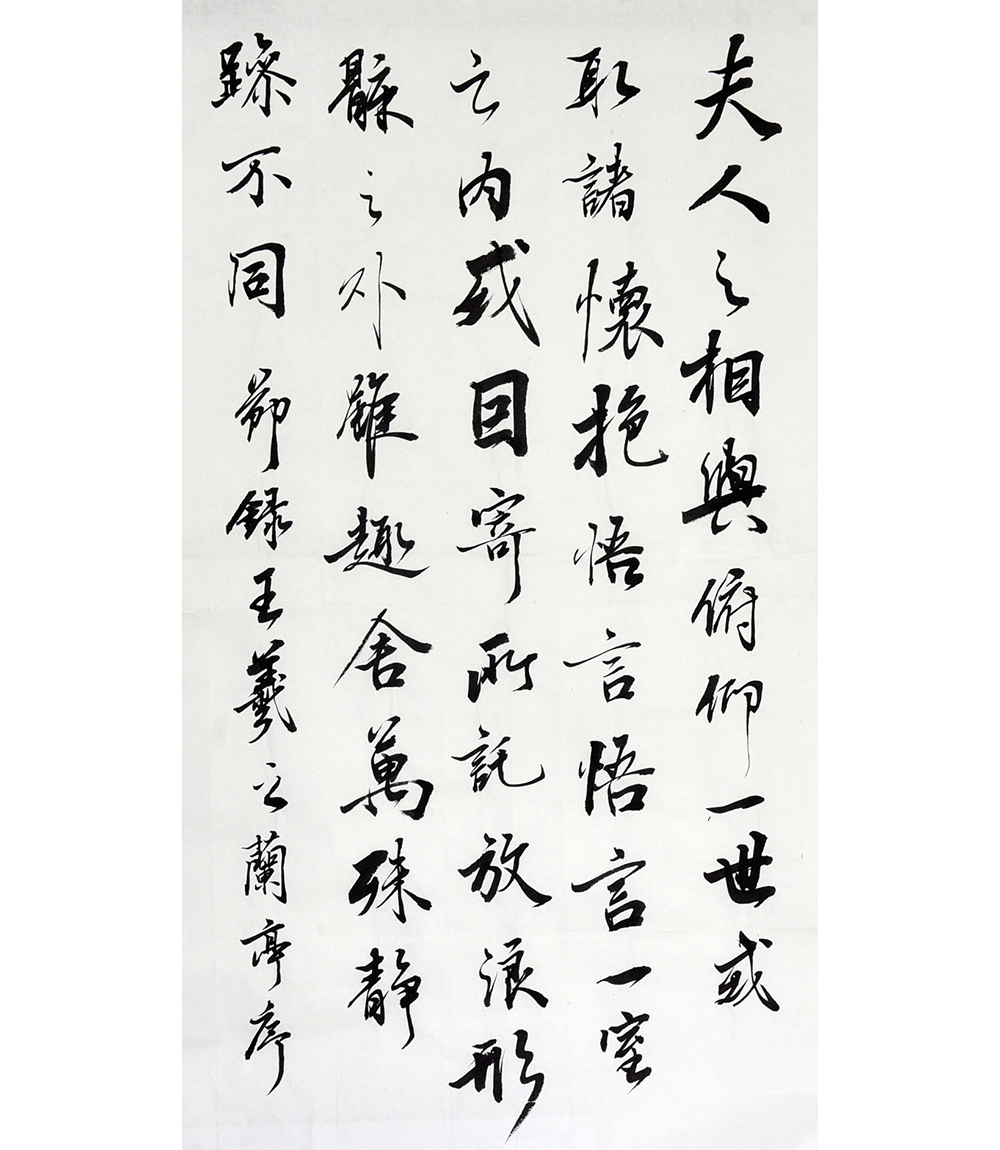 夫人之相與俯仰一世或
取諸懷抱悟言悟言一室
之内或因寄所託放浪形
骸之外雖趣舍萬殊静
躁不同 節録王羲之蘭亭序